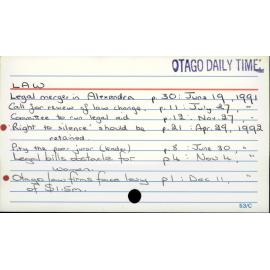 OTAGO DAILY TIMES
LAW
Legal merger in Alexandra p. 30: June 19, 1991
Call for review of law change. p. 11: July 27, "
Committee to run legal aid p. 12: Nov. 27, "
'Right to silence' should be p. 21: Apr. 29, 1992
retained.
Pity the poor juror (leader) p. 8: June 30, "
Legal bills obstacle for p 4: Nov 4, "
women.
Otago law firms face levy p 1: Dec 11, "
of $1.5m.
53/C